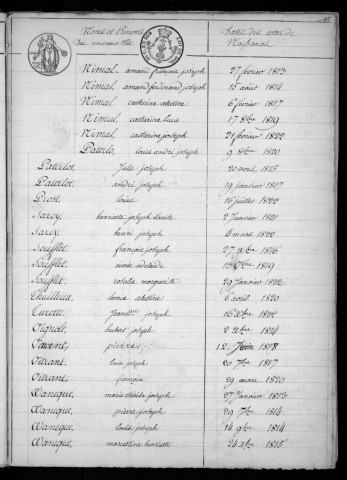 Noms et Prénoms
Des nouveaux Nés
Dates des actes de
Naissances
Nimal, amand françois joseph 27 février 1813
Nimal, amand ferdinand joseph 15 août 1814
Nimal, catherine célestine 6 février 1817
Nimal, catherine luce 17 8bre 1819
Nimal, catherine joseph 21 février 1822
Patelo, louis andré joseph 9 8bre 1820
Patelot, Julie joseph 20 avril 1815
Patelot, andré joseph 19 janvier 1817
Prost, louis 16 juillet 1822
Saroy, henriette joseph 2 janvier 1821
Saroy, henri joseph mars 1822
Soufflet, françois joseph 27 xbre 1816
Soufflet, aimée adélaïde 7bre 1819
Soufflet, rosalie marguerite 29 Janvier 1822
Thuilleux, célestine 6 août 1820
Turette, joseph 16 xbre 1822
Vignole, hubert joseph 2 1814
pierre 12 Juin 1818
Ouvrant, louis joseph 20 7bre 1817
Ouvrant, françois 29 mars 1820
Waneque, marie thérèse joseph 27 Janvier 1813
Waneque, pierre joseph 29 7bre 1814
Waneque, louis joseph 14 9bre 1814
Waneque, marcelline henriette 24 xbre 1815